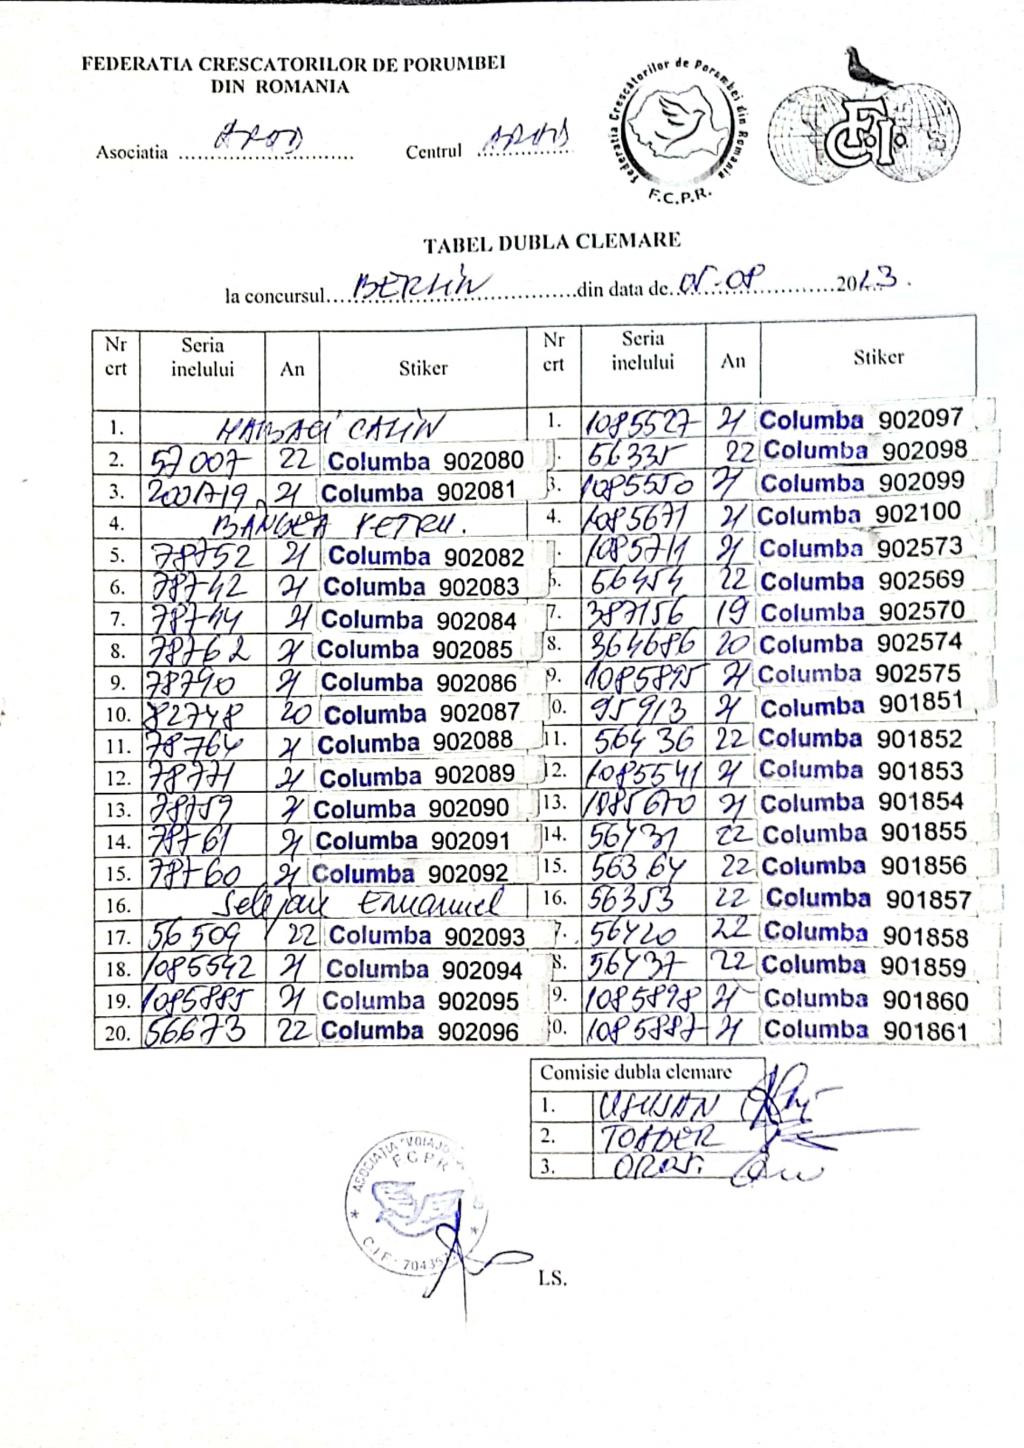 FEDERATIA CRESCATORILOR DE PORUMBEI
DIN ROMANIA
Asociatia ARAD Centrul ARAD
Federatia Crescătorilor de Porumbei din Romania
F.C.P.R.
FCI
TABEL DUBLA CLEMARE
la concursul BERLIN din data de 05-08 2023.
Nr crt Seria inelului An Stiker Nr crt Seria inelului An Stiker
1. CALIN 1. 1085527 21 Columba 902097
2. 57007 22 Columba 902080 . 66335 22 Columba 902098
3. 2001719 21 Columba 902081 3. 1085550 21 Columba 902099
4. PETRU. 4. 1085671 21 Columba 902100
5. 78752 21 Columba 902082 . 1085711 21 Columba 902573
6. 78742 21 Columba 902083 6. 66454 22 Columba 902569
7. 78744 21 Columba 902084 7. 387156 19 Columba 902570
8. 78762 21 Columba 902085 8. 364686 20 Columba 902574
9. 78790 21 Columba 902086 9. 1085895 21 Columba 902575
10. 82748 20 Columba 902087 0. 95913 21 Columba 901851
11. 78764 21 Columba 902088 11. 56436 22 Columba 901852
12. 78771 21 Columba 902089 12. 1085541 21 Columba 901853
13. 78759 21 Columba 902090 13. 1085670 21 Columba 901854
14. 78761 21 Columba 902091 14. 56431 22 Columba 901855
15. 78760 21 Columba 902092 15. 56364 22 Columba 901856
16. Selejan Emanuel 16. 56353 22 Columba 901857
17. 56509 22 Columba 902093 7. 56420 22 Columba 901858
18. 1085542 21 Columba 902094 8. 56437 22 Columba 901859
19. 1085885 21 Columba 902095 9. 1085898 21 Columba 901860
20. 56673 22 Columba 902096 0. 1085887 21 Columba 901861
Comisie dubla clemare
1.
2. TOADER
3.
ASOCIATIA "VOIAJ
FCPR
C.I.F. 70435
LS.